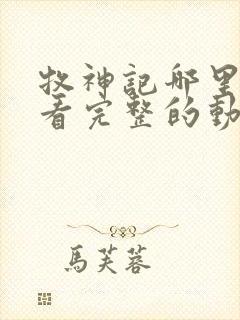 牧神記哪里
看完整的動
馬芙蓉